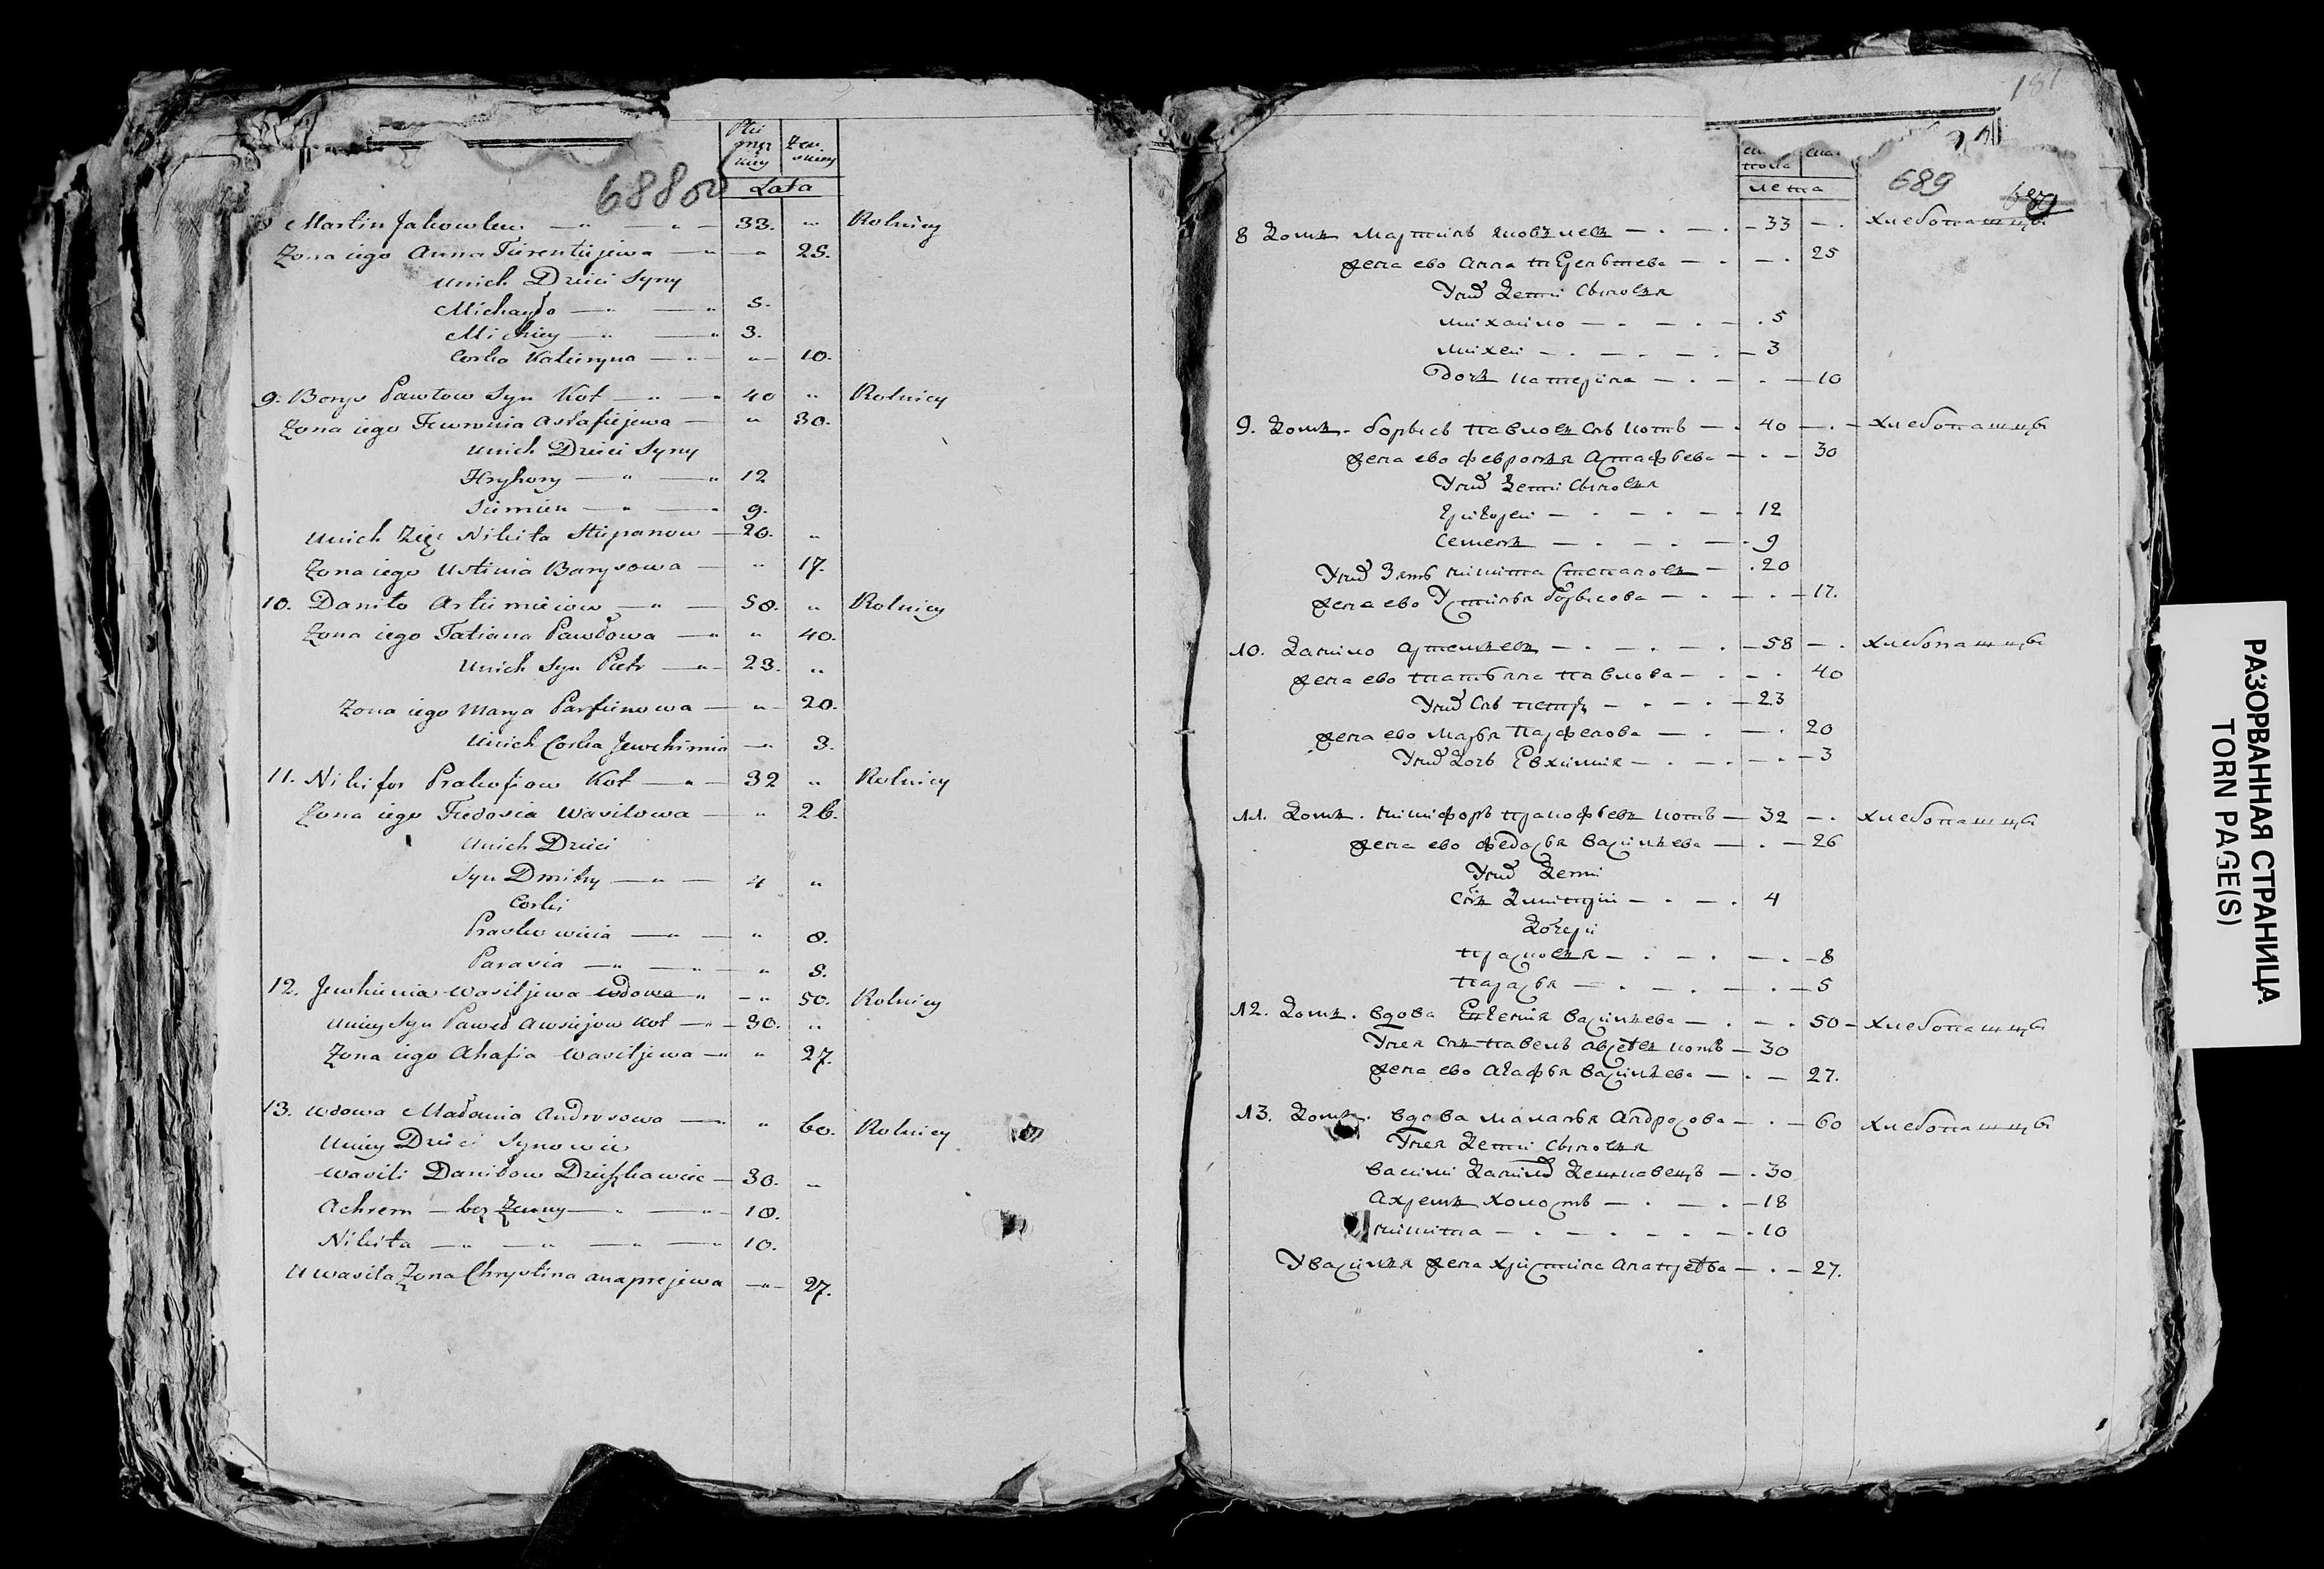 688 об
Płci męzkiey
Żenskiey
Lata
8 Martin Jakowlew 33. " Rolnicy
Żona iego Anna Tierentiejewa " 25.
Unich Dzieci Syny
Michayło 5.
Michiey 3.
Corka Katieryna " 10.
9. Borys Pawłow Syn Kot 40 " Rolnicy
Żona iego Fewronia Astafiejewa " 30.
Unich Dzieci Syny
Hryhory 12
Siemien 9.
Unich Zięć Nikita Stiepanow 20. "
Żona iego Ustinia Barysowa " 17.
10. Daniło Artiemieiow 58. " Rolnicy
Żona iego Tatiana Pawłowa " 40.
Unich Syn Piotr 23. "
Żona iego Marya Parfienowa " 20.
Unich Corka Jewchimia 3.
11. Nikifor Prakofiow Kot 32 " Rolnicy
Żona iego Fiedosia Wasilowa " 26.
Unich Dzieci
Syn Dmitry 4 "
Corki
Praskowiia " 8.
Parasia " 5.
12. Jewhienia Wasiljewa wdowa " 50. Rolnicy
Uniey Syn Paweł Awsiejow Kot 30. "
Żona iego Ahafia Wasiljewa " 27.
13. Wdowa Małania Androsowa " 60. Rolnicy
Uniey Dzieci Synowie
Wasili Daniłow 30. "
Achrem bez Żenny 18.
Nikita 10.
U Wasila Żona Chrystina Anaprejewa 27.
181
689
пола
лета
8 Домъ Мартинъ Яковлевъ 33 Хлебопашцы
жена ево Анна Терентьева 25
Уних дети сыновя
Михайло 5
Михей 3
Дочъ Катерина 10
9. Домъ. Борысь Павловъ снъ Котъ 40 Хлебопашцы
жена ево Февронъя Астафьева 30
Уних дети сыновя
Григорей 12
Семенъ 9
Уних зять Никита Степановъ 20
жена ево Устинья Борысова 17.
10. Данило Артемъевъ 58 Хлебопашцы
жена ево Татьяна Павлова 40
Уних снъ Петръ 23
жена ево Марья Парфенова 20
Уних дочь Евхимия 3
11. Домъ. Никифоръ Пракофьевъ Котъ 32 Хлебопашцы
жена ево Федосья Василъева 26
Уних дети
Снъ Дмитрий 4
Дочери
Прасковъя 8
Парасья 5
12. Домъ. вдова Евгения Василъева 50 Хлебопашцы
Унея снъ Павелъ Авсеевъ Котъ 30
жена ево Агафья Василъева 27.
13. Домъ. вдова Маланья Андросова 60 Хлебопашцы
Унея дети сыновя
Василий Данилов 30
Ахремъ холостъ 18
Никита 10
У Василъя жена Христина Анапреева 27.
РАЗОРВАННАЯ СТРАНИЦА
TORN PAGE(S)